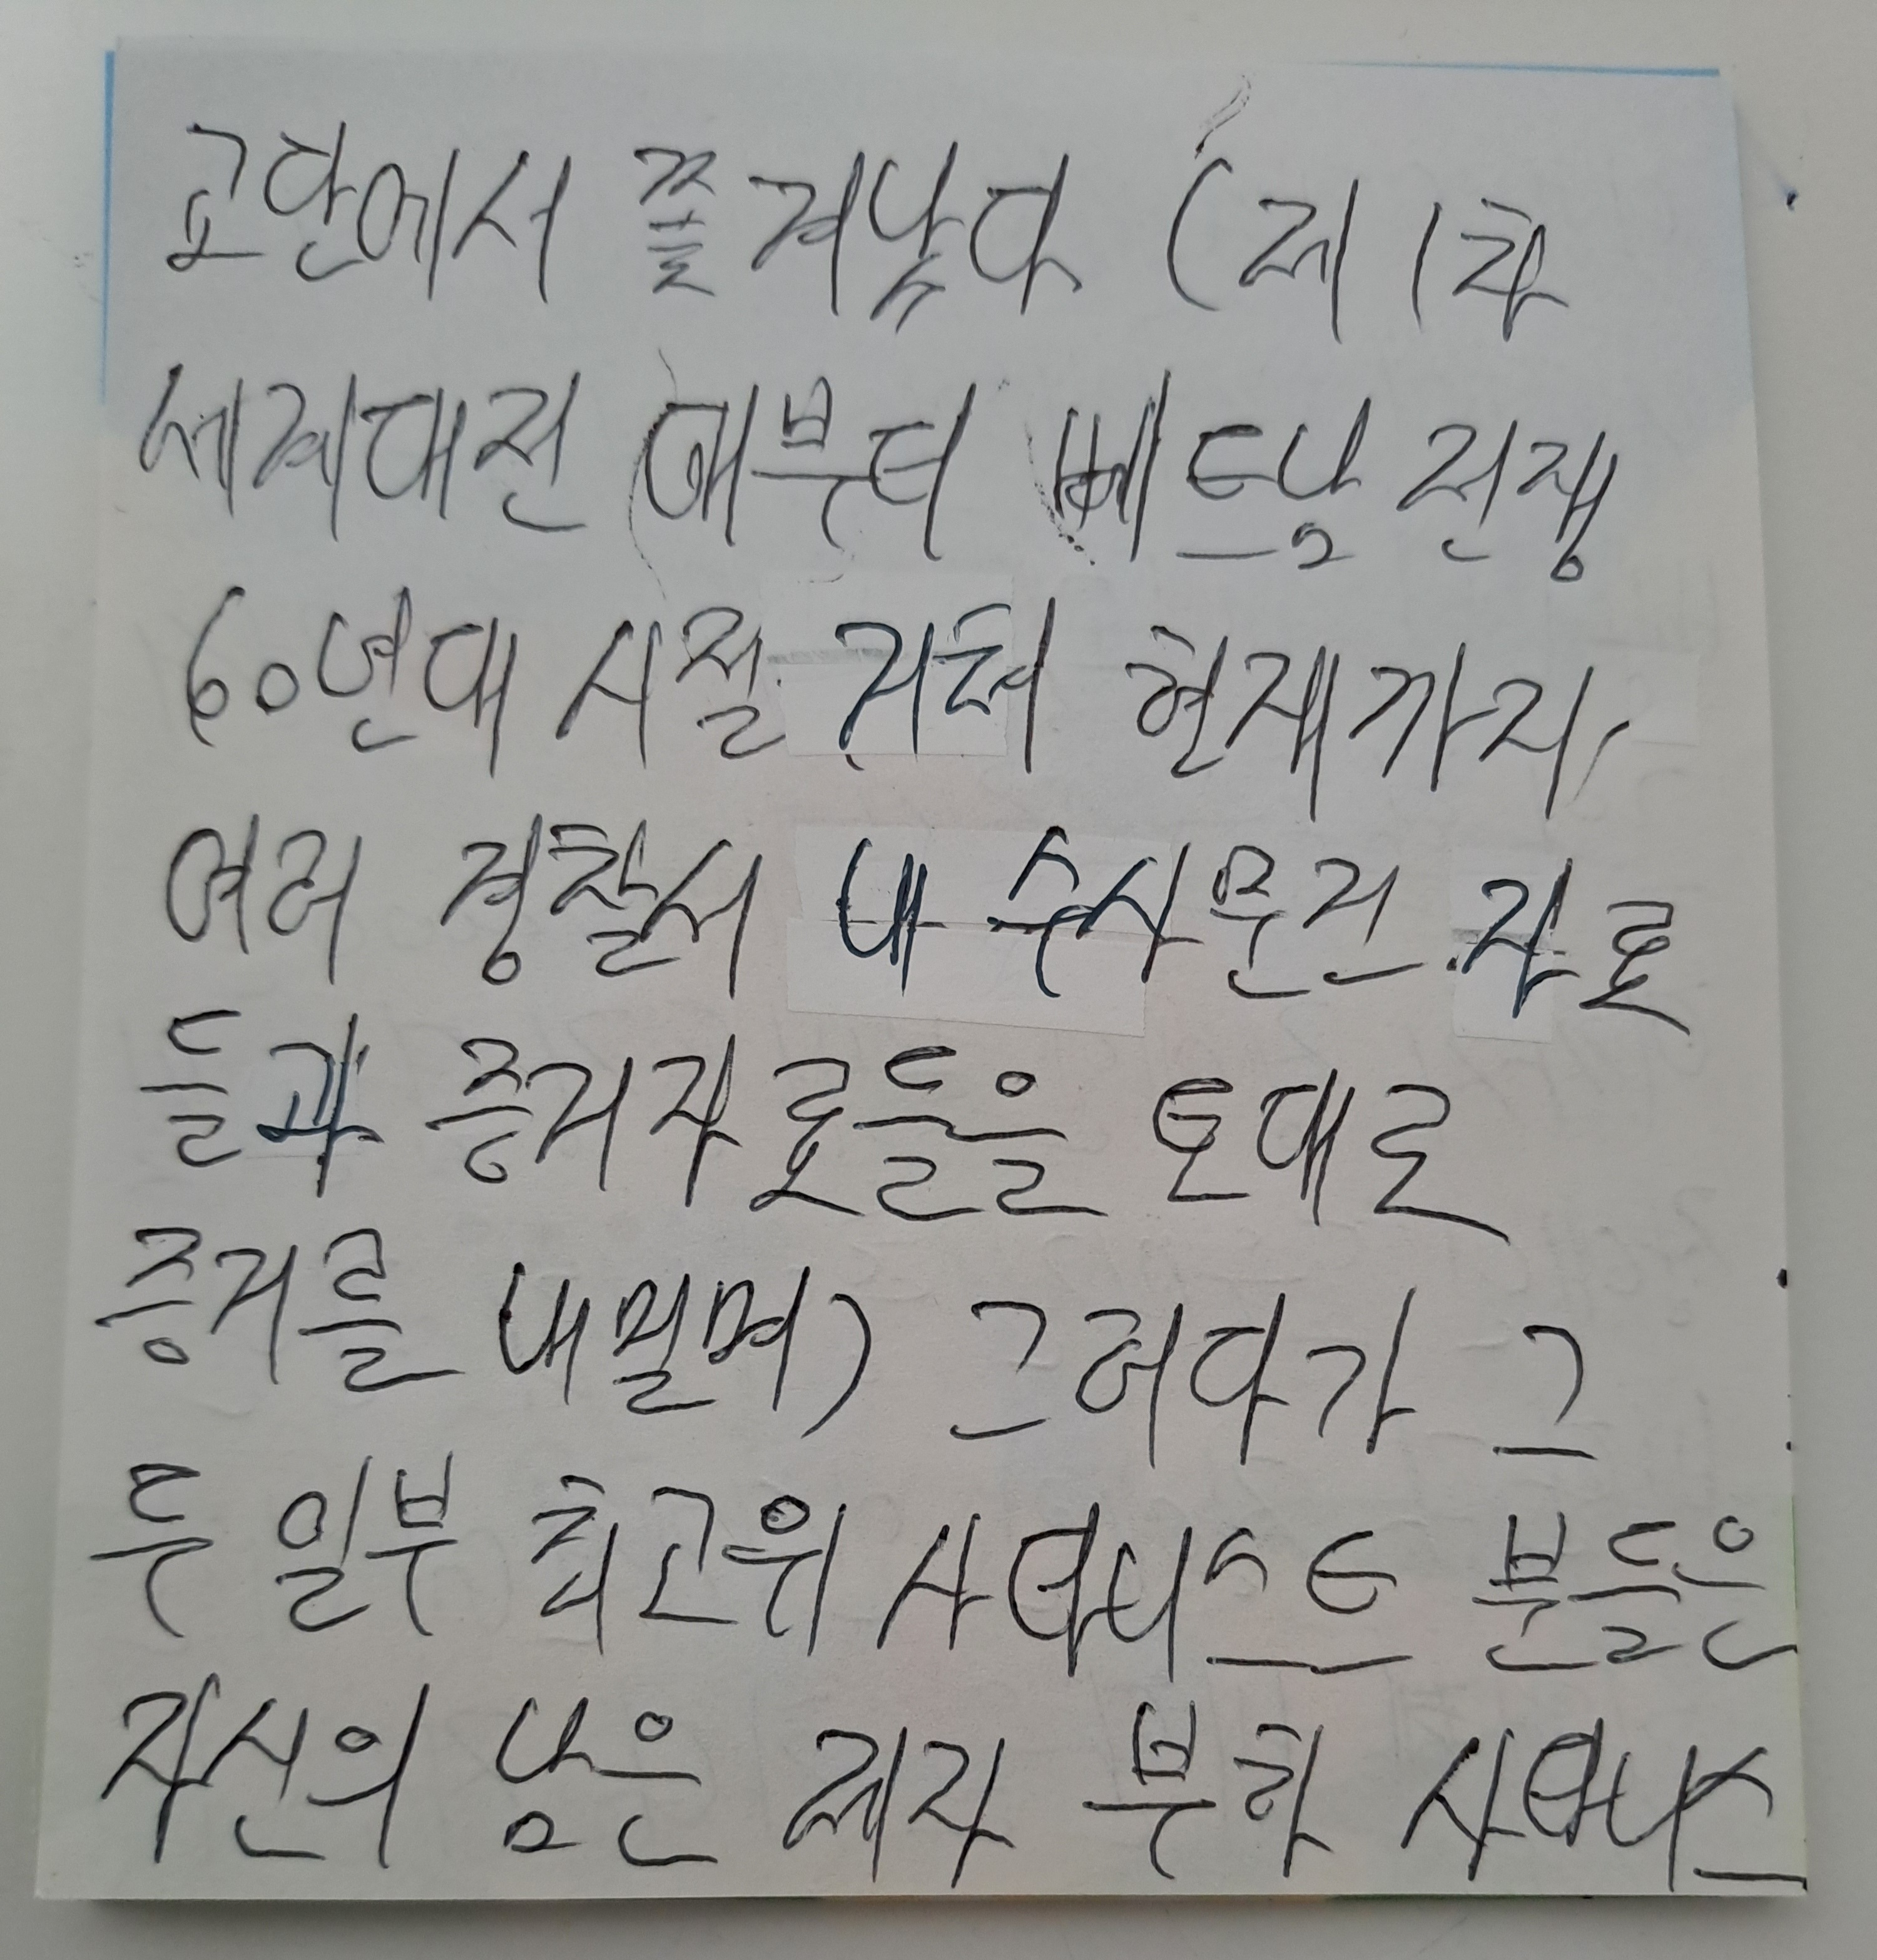 교단에서 쫓겨났다 (제1차
세계대전 때부터 베트남 전쟁
60년대 시절 거쳐 현재까지,
여러 경찰서 내 수사문건 자료
들과 증거자료들을 토대로
증거를 내밀며) 그러다가 그
두 일부 최고위 사타니스트 분들은
자신의 남은 제자 부하 사타니스